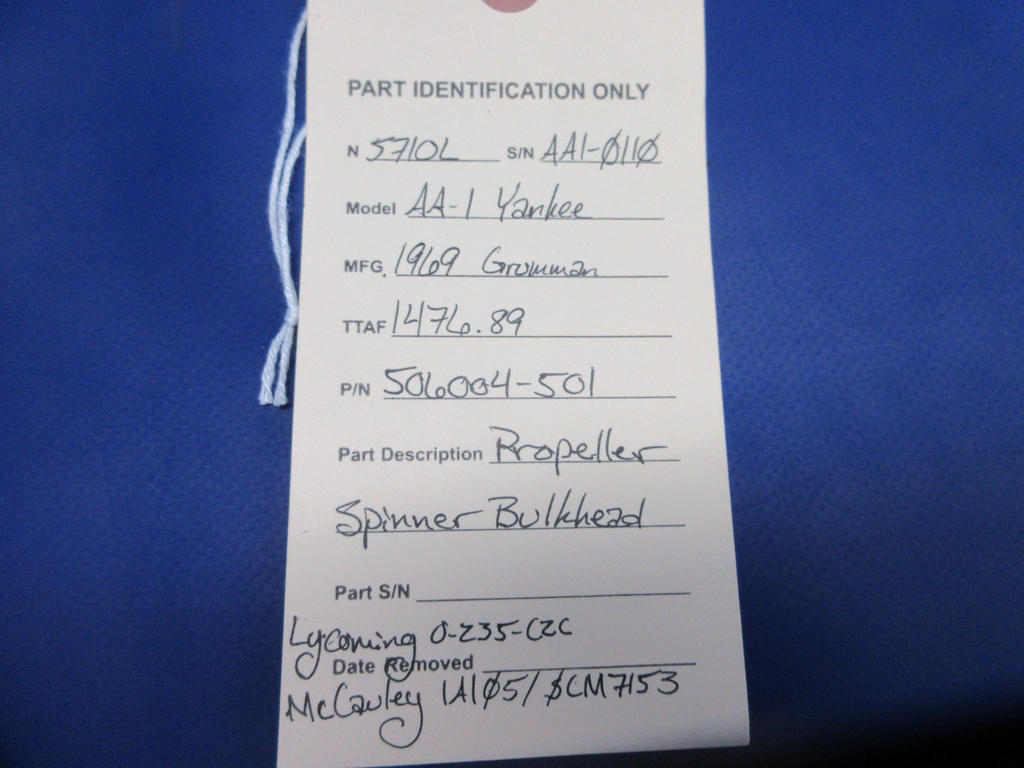 PART IDENTIFICATION ONLY
N 5710L S/N AA1-0110
Model AA-1 Yankee
MFG. 1969 Grumman
TTAF 1476.89
P/N 506004-501
Part Description Propeller
Spinner Bulkhead
Part S/N
Lycoming O-235-C2C
Date Removed
McCauley 1A105/SCM7153